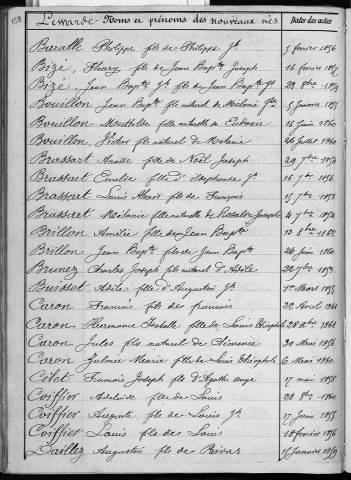 Lewarde Noms et prénoms des nouveaux nés Dates des actes
Buralle Philippe fils de Philippe Jh 5 février 1856
Bizé, Fleury fils de Jean Bapte Joseph 16 février 1855
Bizé, Jean Bapte Jh fils de Jean Bapte 23 8bre 1859
Bouillon Jean Bapte fils naturel de Mélanie 5 Janvier 1853
Bouillon Mathilde fille naturelle de Eudoxie 16 Juin 1860
Bouillon Victor fils naturel de Mélanie Juillet 1860
Brassart Aimée fille de Noël Joseph 29 7bre 1854
Brassart Emélie fille d'ildephonse Jh 16 7bre 1856
Brassart Louis Alexis fils de François 15 7bre 1853
Brassart Mélanie fille naturelle de Rosalie Josephe 4 7bre 1854
Brillon Amélie fille de Jean Bapte 13 8bre 1862
Brillon Jean Bapte fils de Jean Bapte 26 Juin 1860
Brunez Charles Joseph fils naturel d'Adèle 22 7bre 1853
Buisset Adèle fille d'Augustin Jh 1er Mars 1853
Caron François fils de francois 22 Avril 1861
Caron Hermance Isabelle fille de Louis Théophile 28 1861
Caron Jules fils naturel de Clémence 30 Mai 1856
Caron Zulmée Marie fille de Louis Théophile 6 Mai 1860
Célet Francois Joseph fils d'Agathe ange 17 mai 1858
Coiffier Adelaïde fille de Louis 29 8bre 1860
Coiffier Auguste fils de Louis Jh 17 Juin 1855
Coiffier Louis fils de Louis 18 février 1856
Dailliez Augustin fils de 15 Janvier 1859